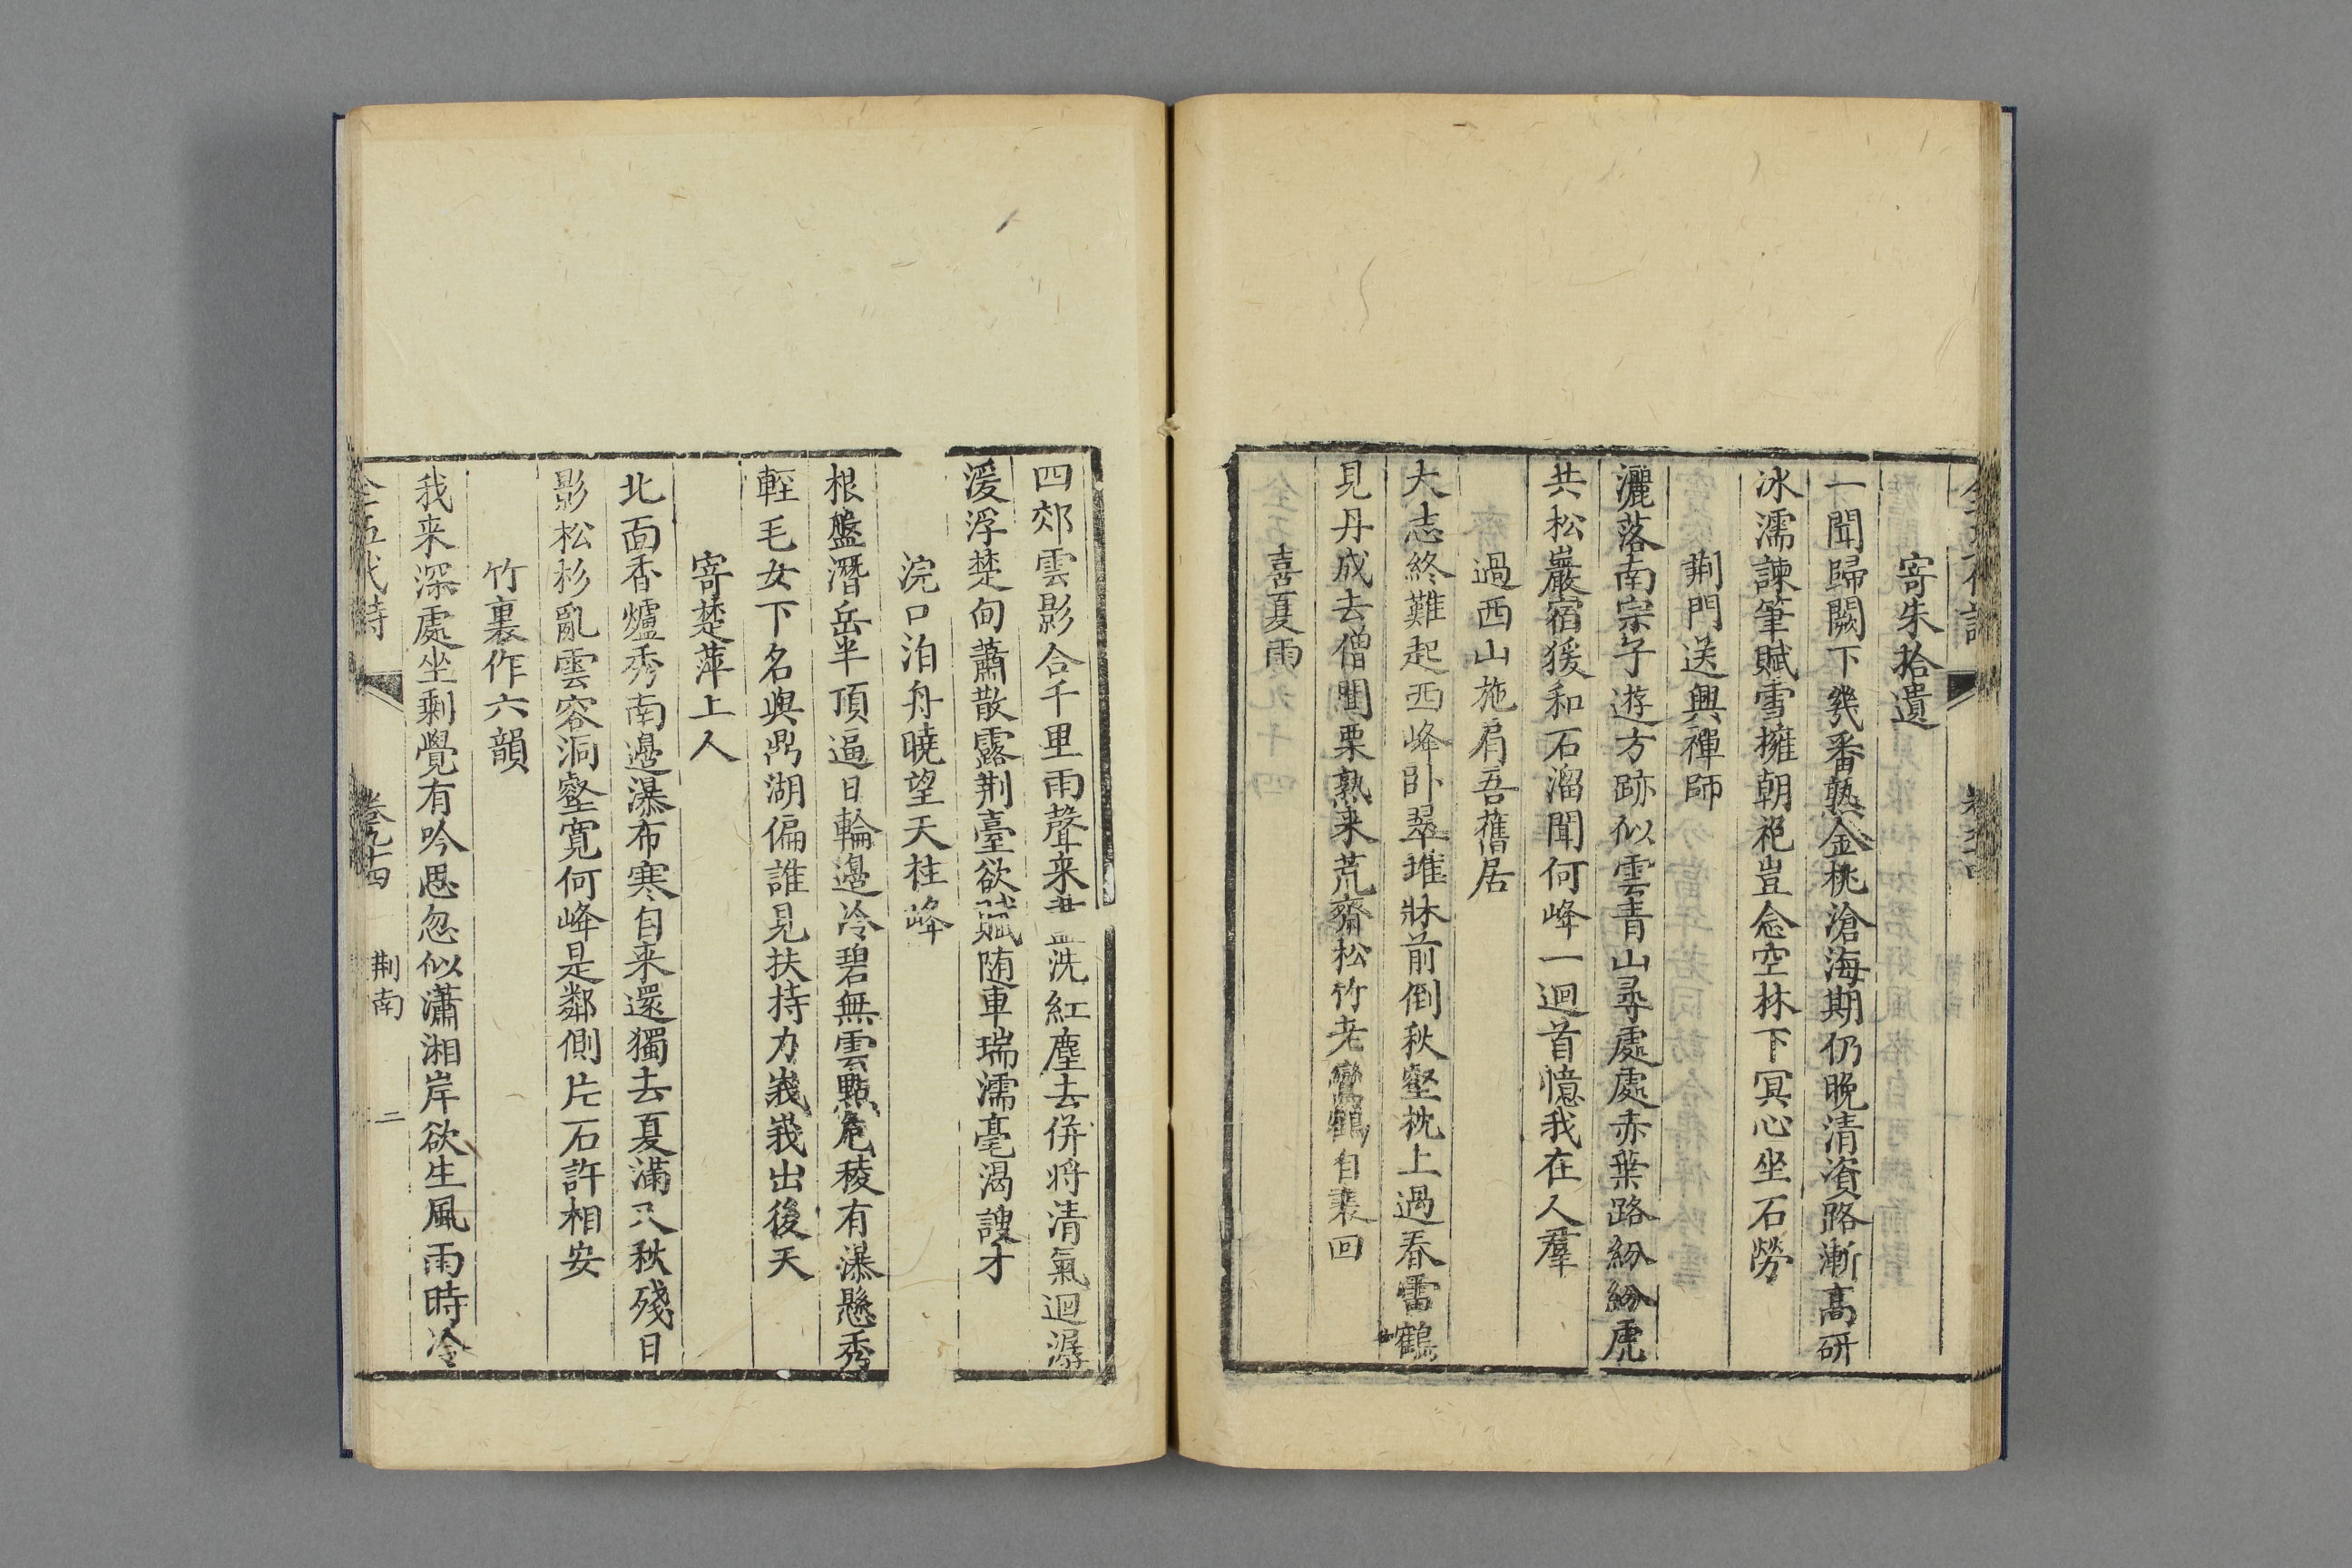 寄朱拾遺
一聞歸闕下幾番熟金桃滄海期仍晚清資路漸高研
冰濡諫筆賦雪擁朝袍豈念空林下冥心坐石勞
荆門送興禪師
灑落南宗子遊方跡似雲青山尋處處赤葉路紛紛虎
共松巖宿猨和石溜聞何峰一迴首憶我在人羣
過西山施肩吾舊居
大志終難起西峰卧翠堆牀前倒秋壑枕上過春雷鶴
見丹成去僧聞栗熟来荒齋松竹老鸞鶴自裴回
喜夏雨
四郊雲影合千里雨聲来盡洗紅塵去併將清氣迴潺
湲浮楚甸蕭散露荆臺欲賦随車瑞濡毫渴謏才
浣口泊舟曉望天柱峰
根盤潛岳半頂逼日輪邉冷碧無雲點危稜有瀑懸秀
輕毛女下名與鼎湖偏誰見扶持力峩峩出後天
寄楚萍上人
北面香爐秀南邉瀑布寒自来還獨去夏滿又秋殘日
影松杉亂雲容洞壑寬何峰是鄰側片石許相安
竹裏作六韻
我来深處坐剩覺有吟思忽似瀟湘岸欲生風雨時冷
全五代詩 卷九十四 荆南 二